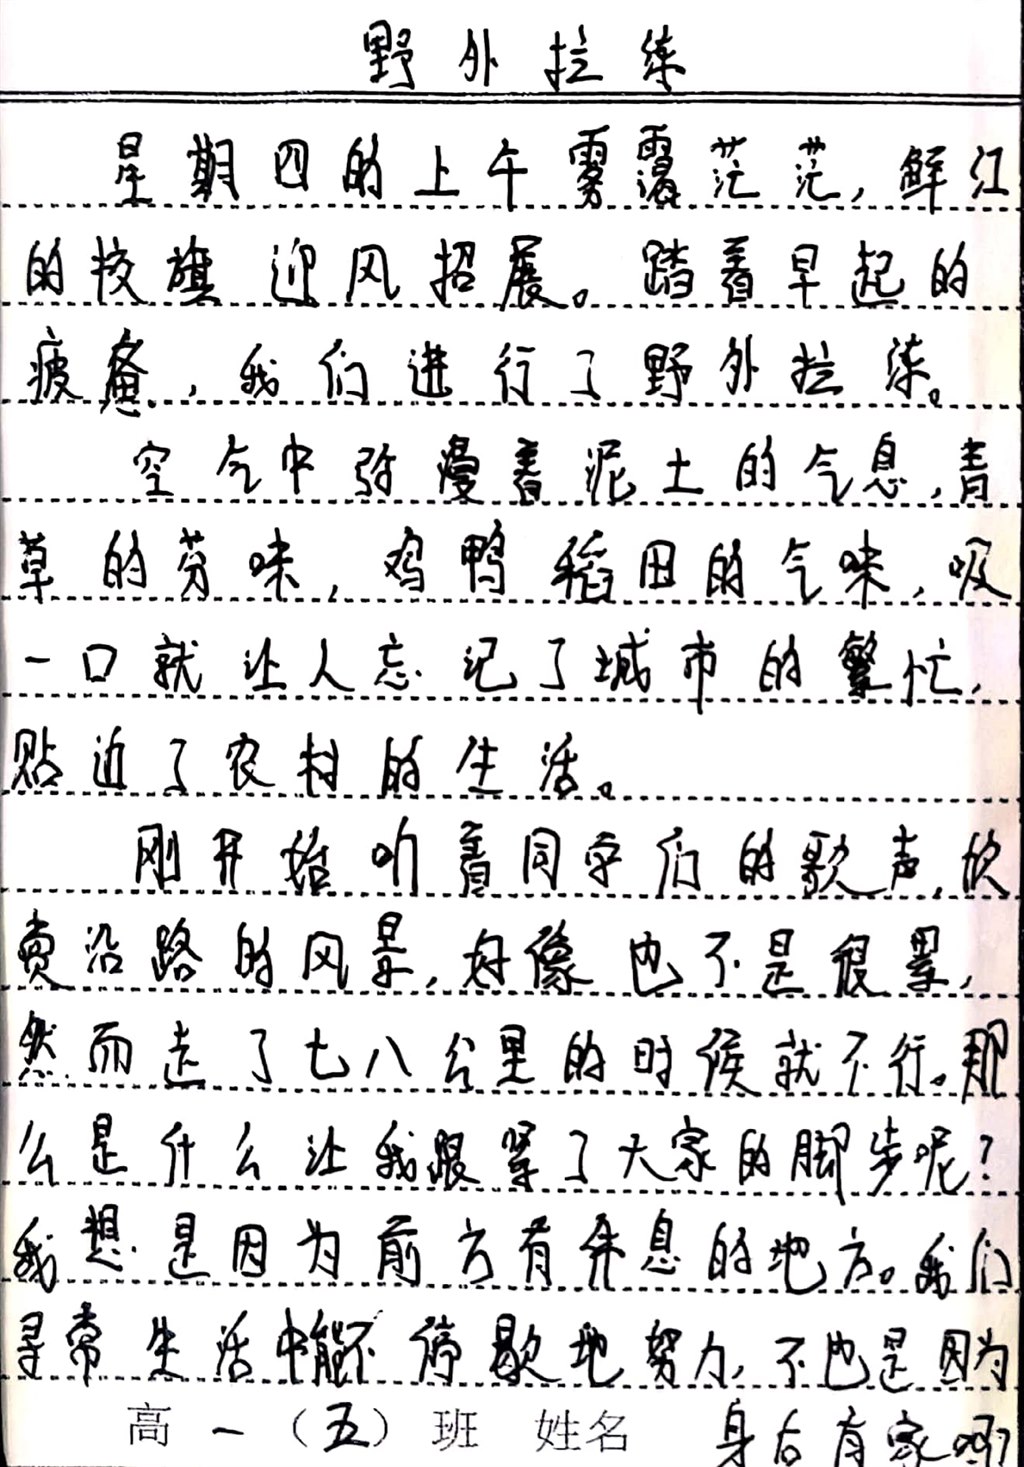 野外拉练
星期四的上午雾霭茫茫，鲜红
的校旗迎风招展。踏着早起的
疲惫，我们进行了野外拉练。
空气中弥漫着泥土的气息，青
草的芬味，鸡鸭稻田的气味，吸
一口就让人忘记了城市的繁忙，
贴近了农村的生活。
刚开始听着同学们的歌声，欣
赏沿路的风景，好像也不是很累，
然而走了七八公里的时候就不行。那
么是什么让我跟紧了大家的脚步呢？
我想是因为前方有休息的地方。我们
寻常生活中能不停歇地努力，不也是因为
身后有家吗？
高一（五）班 姓名